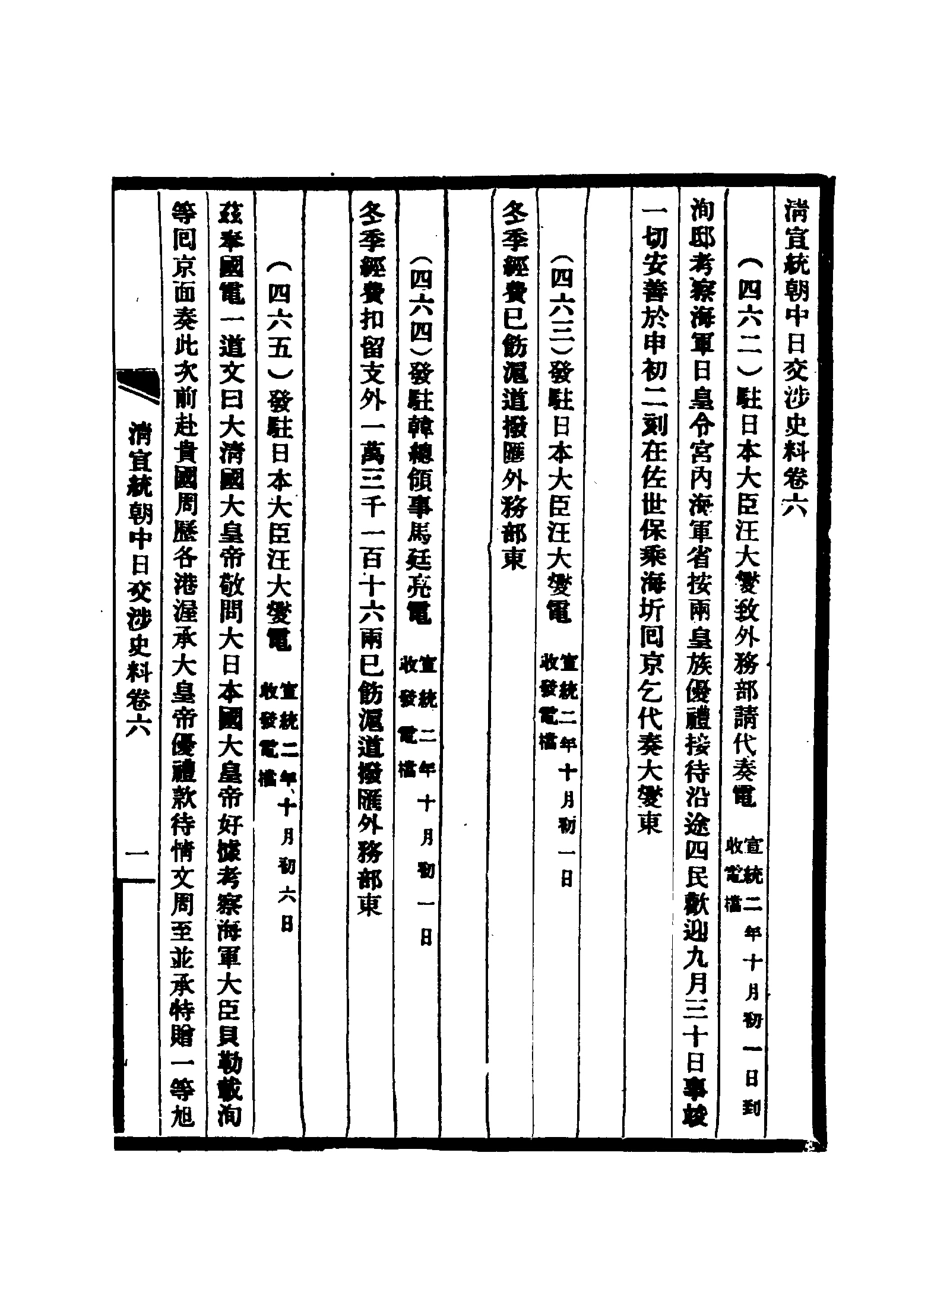 清宣統朝中日交涉史料卷六
(四六二)駐日本大臣汪大燮致外務部請代奏電 宣統二年十月初一日到
收電檔
洵邸考察海軍日皇令宮內海軍省按兩皇族優禮接待沿途四民歡迎九月三十日事竣
一切安善於申初二刻在佐世保乘海圻囘京乞代奏大燮東
(四六三)發駐日本大臣汪大燮電 宣統二年十月初一日
收發電檔
冬季經費已飭滬道撥匯外務部東
(四六四)發駐韓總領事馬廷亮電 宣統二年十月初一日
收發電檔
冬季經費扣留支外一萬三千一百十六兩已飭滬道撥匯外務部東
(四六五)發駐日本大臣汪大燮電 宣統二年十月初六日
收發電檔
茲奉國電一道文曰大清國大皇帝敬問大日本國大皇帝好據考察海軍大臣貝勒載洵
等囘京面奏此次前赴貴國周歷各港渥承大皇帝優禮款待情文周至並承特贈一等旭
清宣統朝中日交涉史料卷六 一